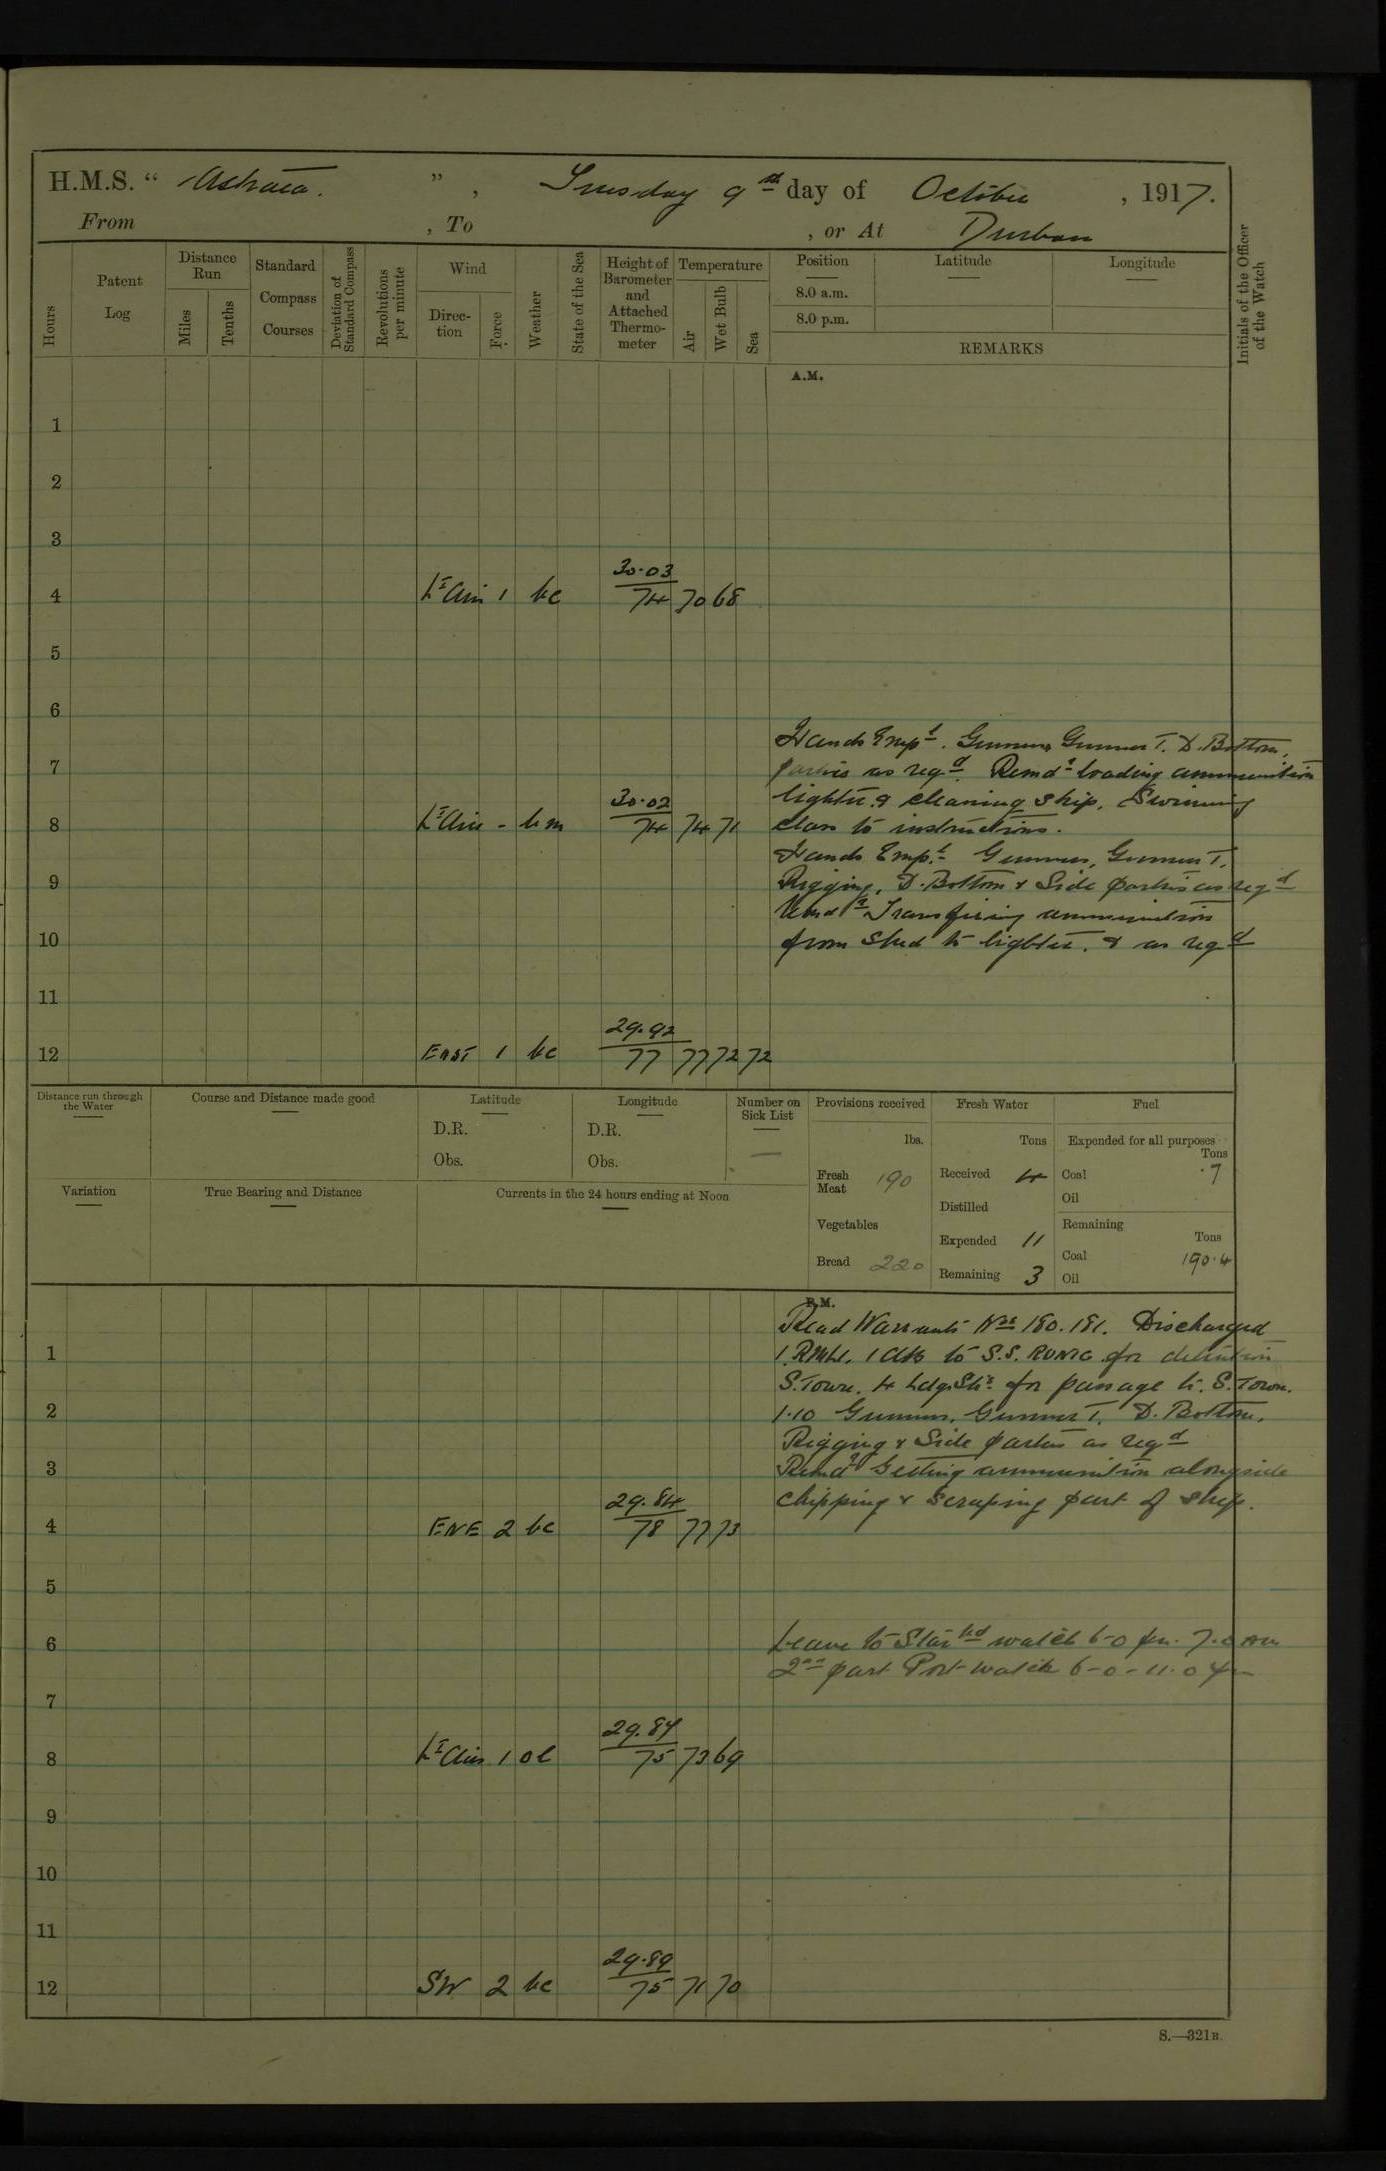 H.M.S. " Astraea. ", Tuesday 9th day of October, 1917.
From , To , or At Durban
Hours
Patent Log
Distance Run
Miles
Tenths
Standard Compass Courses
Deviation of Standard Compass
Revolutions per minute
Wind
Direction
Force
Weather
State of the Sea
Height of Barometer and Attached Thermometer
Temperature
Air
Wet Bulb
Sea
Position
Latitude
Longitude
8.0 a.m.
8.0 p.m.
REMARKS
Initials of the Officer of the Watch
A.M.
1
2
3
4 Lt Airs 1 bc 30.03 74 70 68
5
6
Hands Empd. Gunners Gunner T. D. Bottom,
7 parties as reqd. Remdr loading ammunition
lighter & cleaning ship. Swimming
8 Lt Airs - bm 30.02 74 74 71 class to instructions.
Hands Empd. Gunners, Gunners T,
9 Rigging, D. Bottom & Side parties as reqd
Remdr Transfering ammunition
10 from shed to lighter. & as reqd
11
12 EAST 1 bc 29.92 77 77 72 72
Distance run through the Water
Course and Distance made good
Latitude
D.R.
Obs.
Longitude
D.R.
Obs.
Number on Sick List
—
Provisions received
lbs.
Fresh Meat 190
Vegetables
Bread 220
Fresh Water
Tons
Received 4
Distilled
Expended 11
Remaining 3
Fuel
Expended for all purposes
Tons
Coal .7
Oil
Remaining
Tons
Coal 190.4
Oil
Variation
True Bearing and Distance
Currents in the 24 hours ending at Noon
P.M.
Read Warrants Nos 180. 181. Discharged
1 1 RMLI. 1 AB to S.S. RUNIC for detention
S. Town. 4 Ldg. Sto. for passage to S. Town.
2 1.10 Gunners, Gunners T, D. Bottom,
Rigging & Side parties as reqd
3 Remdr Getting ammunition alongside
chipping & scraping part of ship.
4 ENE 2 bc 29.84 78 77 73
5
6 Leave to Starbd watch 6-0 pm. 7.0 am
2nd part Port watch 6-0 - 11.0 pm
7
8 Lt Airs 1 ol 29.87 75 73 69
9
10
11
12 SW 2 bc 29.89 75 71 70
S.—321B.